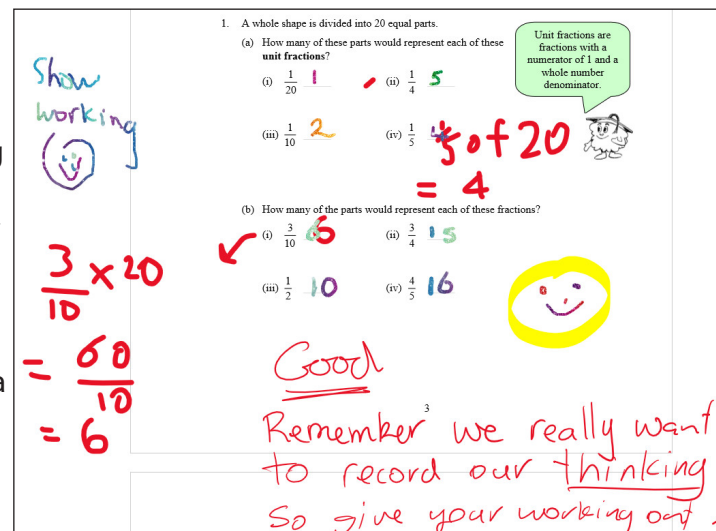 1. A whole shape is divided into 20 equal parts.
(a) How many of these parts would represent each of these
unit fractions?
(i) 1/20 1 (ii) 1/4 5
(iii) 1/10 2 (iv) 1/5 1/5 of 20
= 4
Unit fractions are
fractions with a
numerator of 1 and a
whole number
denominator.
Show
working
(b) How many of the parts would represent each of these fractions?
(i) 3/10 6 (ii) 3/4 15
(iii) 1/2 10 (iv) 4/5 16
3/10 x 20
= 60/10
= 6
Good
3
Remember we really want
to record our thinking
so give your working out.